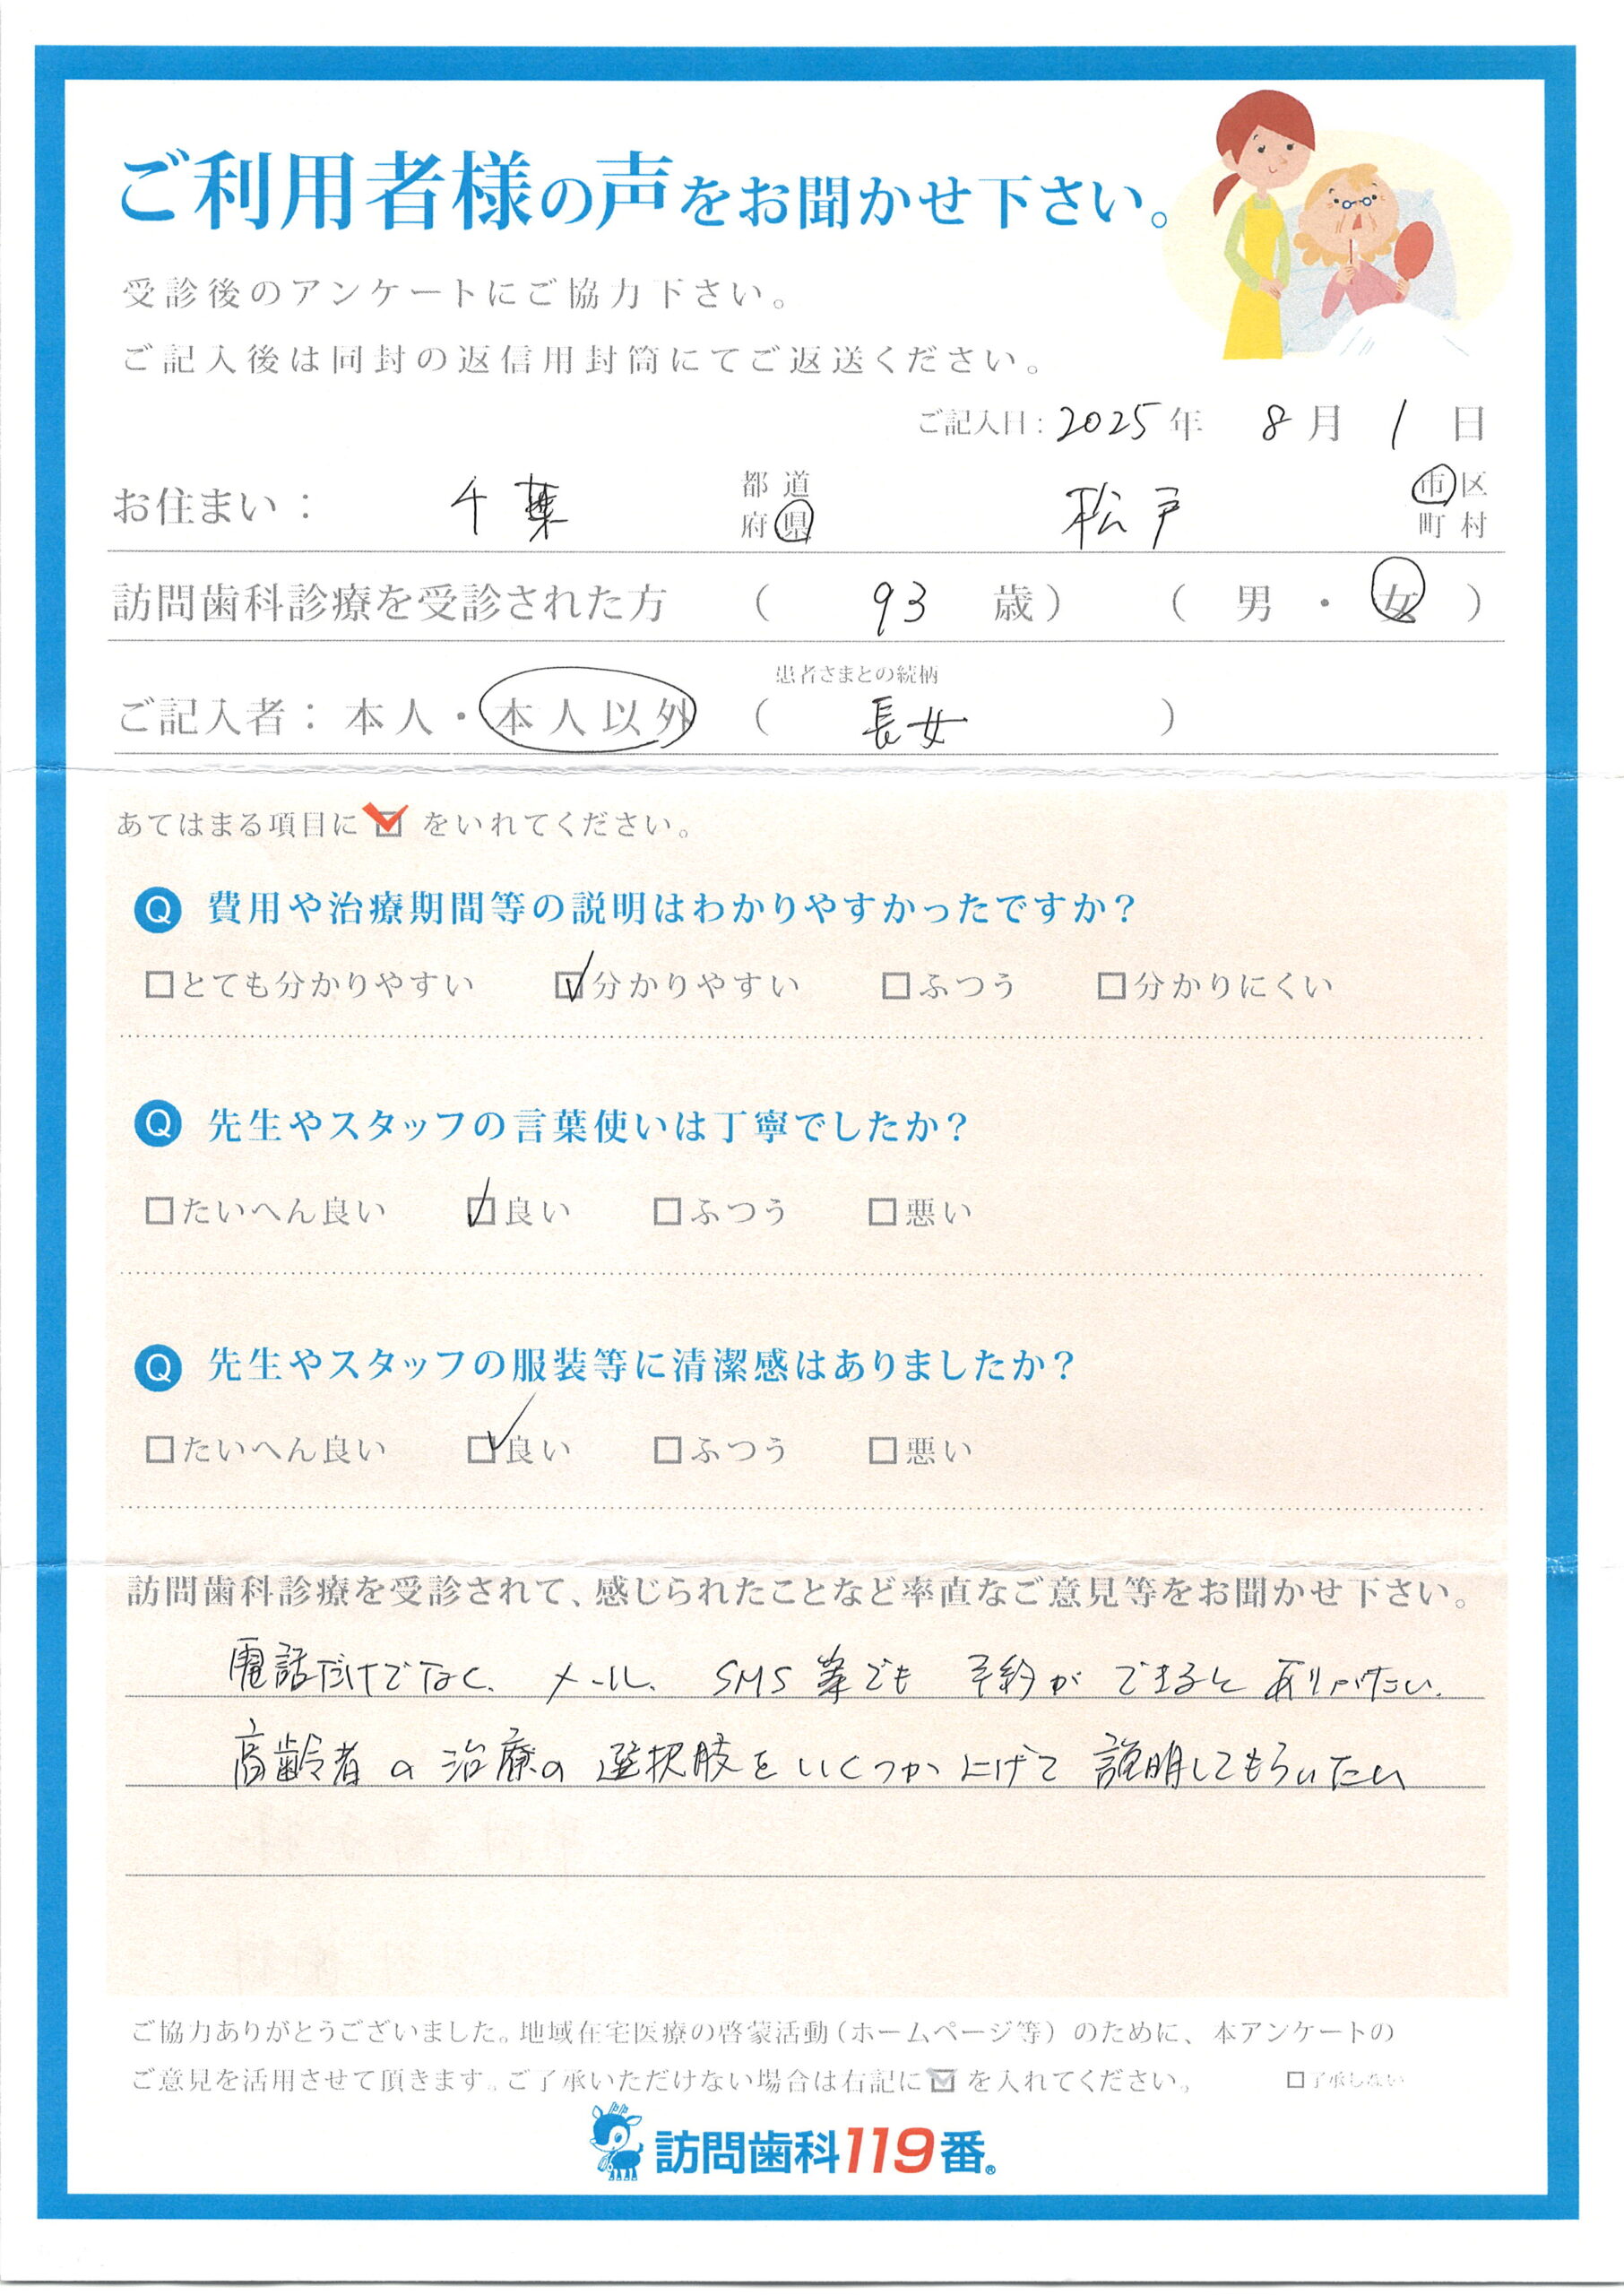 ご利用者様の声をお聞かせ下さい。
受診後のアンケートにご協力下さい。
ご記入後は同封の返信用封筒にてご返送ください。
ご記入日：2025年 8月 1日
お住まい： 千葉 都道府県 松戸 市区町村
訪問歯科診療を受診された方 （ 93 歳） （ 男 ・ 女 ）
患者さまとの続柄
ご記入者：本人・本人以外 （ 長女 ）
あてはまる項目に☑をいれてください。
Q 費用や治療期間等の説明はわかりやすかったですか？
□とても分かりやすい ☑分かりやすい □ふつう □分かりにくい
Q 先生やスタッフの言葉使いは丁寧でしたか？
□たいへん良い ☑良い □ふつう □悪い
Q 先生やスタッフの服装等に清潔感はありましたか？
□たいへん良い ☑良い □ふつう □悪い
訪問歯科診療を受診されて、感じられたことなど率直なご意見等をお聞かせ下さい。
電話だけでなく、メール、SMS等でも 予約が できると ありがたい。
高齢者の治療の選択肢をいくつか上げて 説明してもらいたい
ご協力ありがとうございました。地域在宅医療の啓蒙活動（ホームページ等）のために、本アンケートの
ご意見を活用させて頂きます。ご了承いただけない場合は右記に☑を入れてください。 □了承しない
訪問歯科119番®